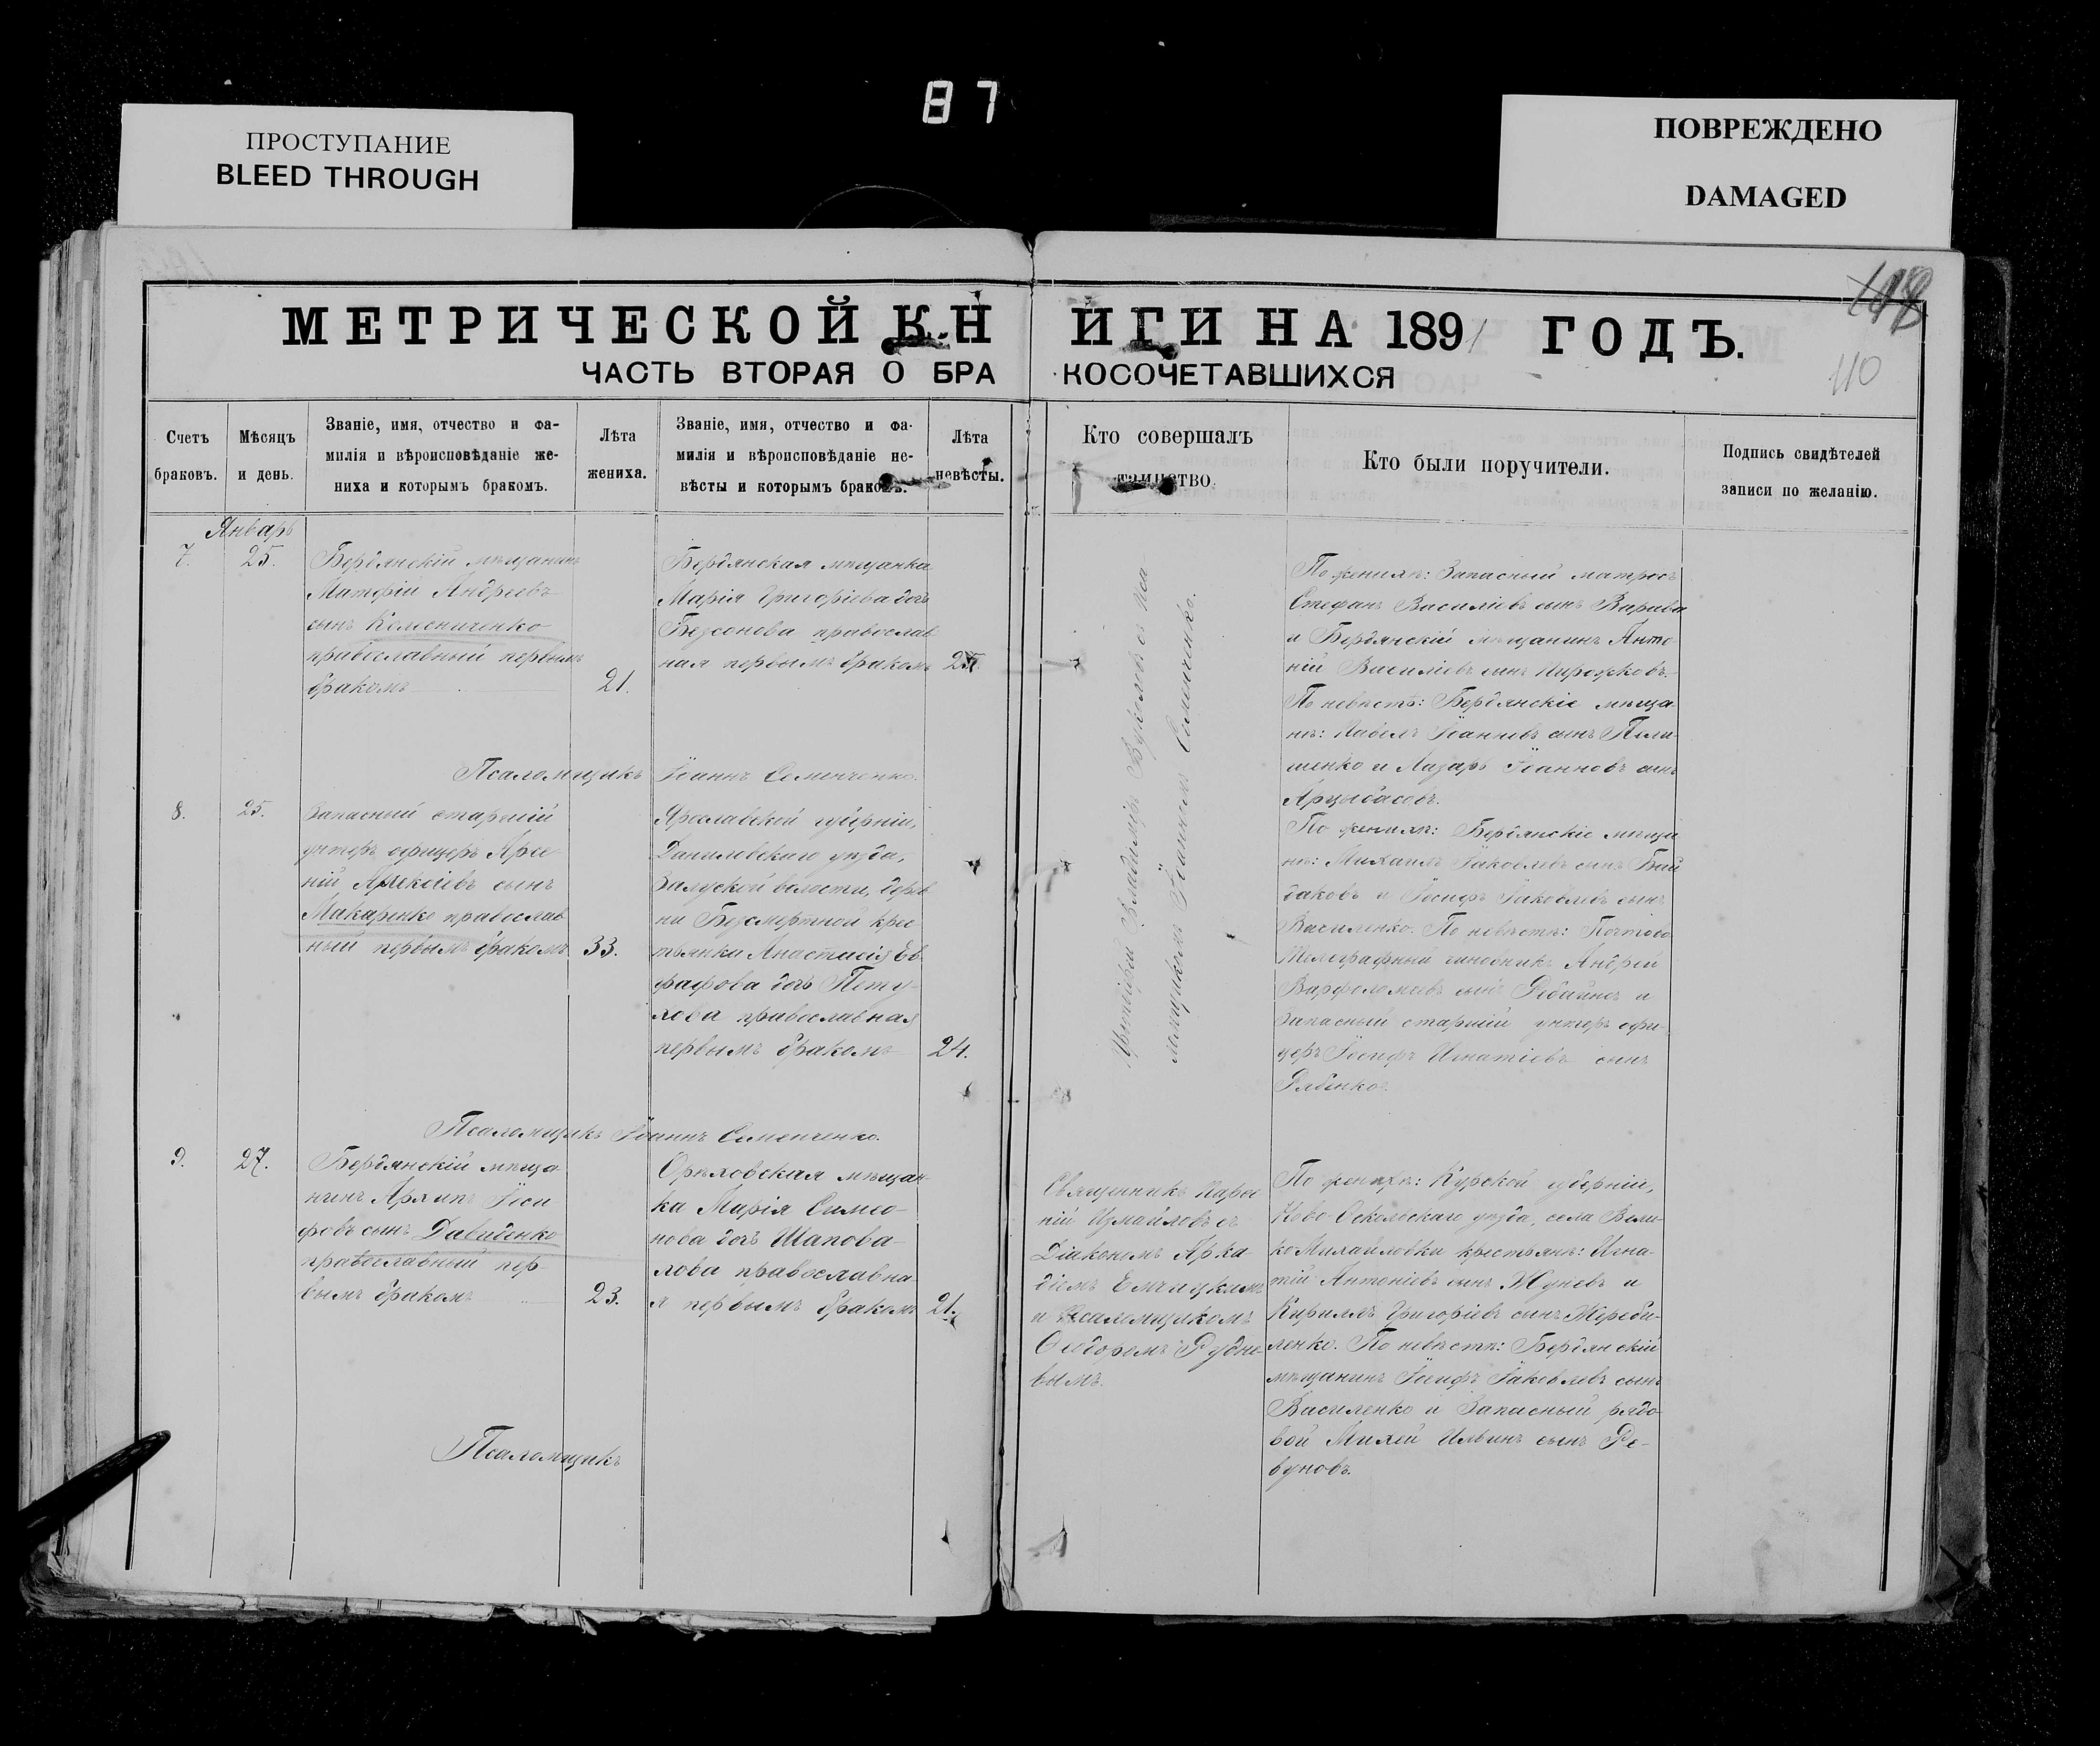 87
ПРОСТУПАНИЕ
BLEED THROUGH
ПОВРЕЖДЕНО
DAMAGED
110
МЕТРИЧЕСКОЙ КНИГИ НА 1891 ГОДЪ.
ЧАСТЬ ВТОРАЯ О БРАКОСОЧЕТАВШИХСЯ
Счетъ
браковъ.
Мѣсяцъ
и день.
Званіе, имя, отчество и фа-
милія и вѣроисповѣданіе же-
ниха и которымъ бракомъ.
Лѣта
жениха.
Званіе, имя, отчество и фа-
милія и вѣроисповѣданіе не-
вѣсты и которымъ бракомъ.
Лѣта
невѣсты.
Кто совершалъ
таинство.
Кто были поручители.
Подпись свидѣтелей
записи по желанію.
Январь
7.
25.
Бердянскій мѣщанинъ
Матфій Андреевъ
сынъ Колесниченко
православный первымъ
бракомъ
21.
Бердянская мѣщанка
Марія Григоріева дочь
Безсонова православ
ная первымъ бракомъ
Псаломщикъ Іоаннъ Семенченко.
По женихѣ: Запасный матросъ
Стефанъ Василіевъ сынъ Варава
и Бердянскій мѣщанинъ Анто
ній Василіевъ сынъ Пирожковъ.
По невѣстѣ: Бердянскіе мѣща
не: Павелъ Іоанновъ сынъ
шенко и Лазарь Іоанновъ сынъ
Арцыбасовъ.
8.
25.
Запасный старшій
унтеръ офицеръ Арсе
ній Алексіевъ сынъ
Макаренко православ
ный первымъ бракомъ
33.
Ярославской губерніи,
Даниловскаго уѣзда,
волости, дерев
ни Безсмертной крес
тьянка Анастасія Ев
графова дочь Пету
хова православная
первымъ бракомъ
24.
Псаломщикъ Іоаннъ Семенченко.
Владиміръ съ пса
ломщикомъ Іоанномъ Семенченко.
По женихѣ: Бердянскіе мѣща
не: Михаилъ Іаковлевъ сынъ Бай
даковъ и Іосифъ Іаковлевъ сынъ
Василенко. По невѣстѣ: Почтово
Телеграфный чиновникъ Андрей
Варфоломеевъ сынъ и
Запасный старшій унтеръ офи-
церъ Іосифъ Игнатіевъ сынъ
Рябенко.
9.
27.
Бердянскій мѣща
нинъ Архипъ Іоси
фовъ сынъ Давиденко
православный пер-
вымъ бракомъ
23.
Орѣховская мѣщан-
ка Марія Симео-
нова дочь Шапова-
лова православна-
я первымъ бракомъ
21.
Псаломщикъ
Священникъ Парѳе
ній Измайловъ съ
Діакономъ Арка
діемъ
и Псаломщикомъ
Ѳеодоромъ Рудне
вымъ.
По женихѣ: Курской губерніи,
Ново Оскольскаго уѣзда, села Вели-
ко Михайловки крестьяне: Игна-
тій Антоніевъ сынъ Жуневъ и
Кириллъ Григоріевъ сынъ Жереби-
ленко. По невѣстѣ: Бердянскій
мѣщанинъ Іосифъ Іаковлевъ сынъ
Василенко и Запасный рядо-
вой Михей Ильинъ сынъ Ре-
вуновъ.